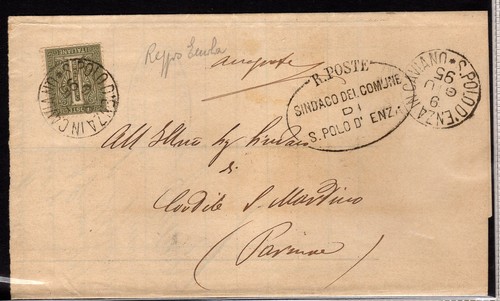 Reggio Emilia
R. POSTE
SINDACO DEL COMUNE
DI
S. POLO D' ENZA
S. POLO D'ENZA IN CAVIANO
9
GIU
95
S. POLO D'ENZA IN CAVIANO
All' Illmo Sig Sindaco
di
S. Martino
(Parma)